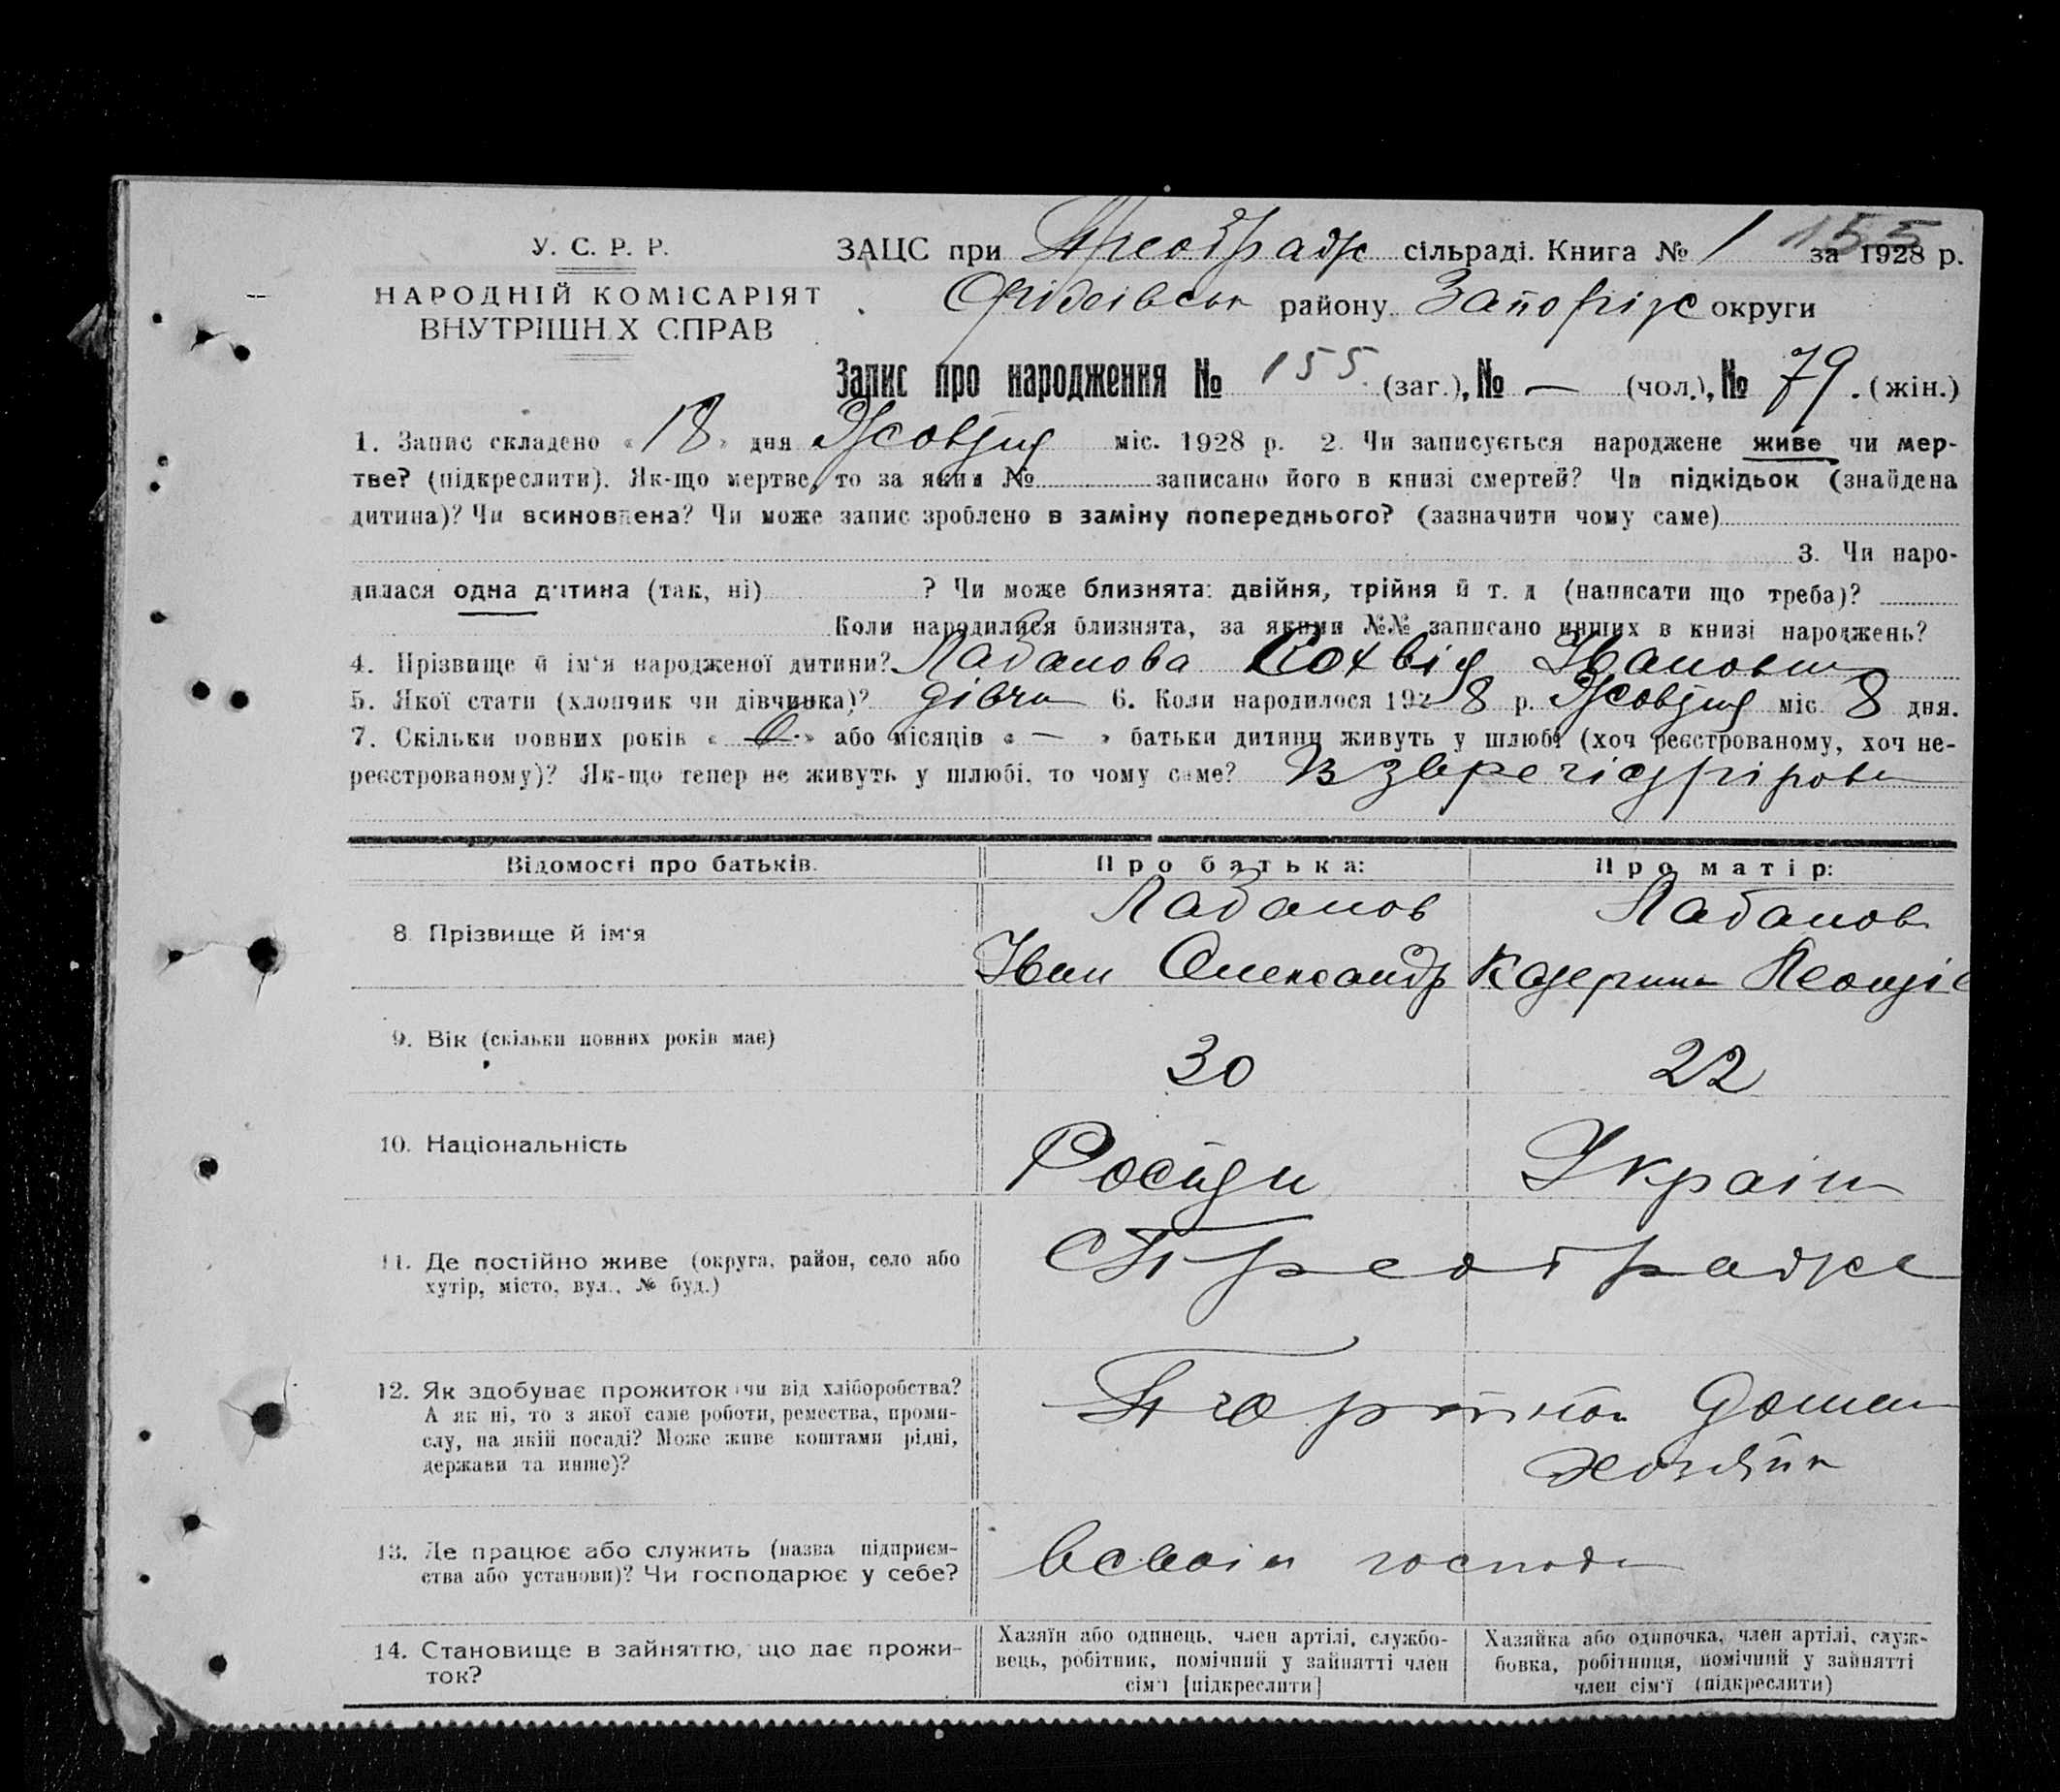 У. С. Р. Р.
НАРОДНІЙ КОМІСАРІЯТ
ВНУТРІШН Х СПРАВ
155
ЗАЦС при Преображ сільраді. Книга № 1 за 1928 р.
району Запоріж округи
Запис про народження № 155 (заг.), № — (чол.), № 79. (жін.)
1. Запис складено « 18 » дня Жовтня міс. 1928 р. 2. Чи записується народжене живе чи мер-
тве? (підкреслити). Як-що мертве, то за яким № записано його в книзі смертей? Чи підкідьок (знайдена
дитина)? Чи всиновлена? Чи може запис зроблено в заміну попереднього? (зазначити чому саме)
3. Чи наро-
дилася одна дитина (так, ні) ? Чи може близнята: двійня, трійня й т. д (написати що треба)?
Коли народилися близнята, за якими №№ записано инших в книзі народжень?
4. Прізвище й ім‘я народженої дитини? Лабанова Івановн
5. Якої стати (хлопчик чи дівчинка)? дівчи 6. Коли народилося 1928 р. Жовтня міс. 8 дня.
7. Скільки повних років « » або місяців « — » батьки дитини живуть у шлюбі (хоч реєстрованому, хоч не-
реєстрованому)? Як-що тепер не живуть у шлюбі, то чому саме?
Відомості про батьків.
Про батька:
Про матір:
8. Прізвище й ім‘я
Лабанов
Іван Олександр
Лабанов
Катерина
9. Вік (скільки повних років має)
30
22
10. Національність
Україн
11. Де постійно живе (округа, район, село або
хутір, місто, вул., № буд.)
Преображе
12. Як здобуває прожиток: чи від хліборобства?
А як ні, то з якої саме роботи, ремества, проми-
слу, на якій посаді? Може живе коштами рідні,
держави та инше)?
Домаш
13. Де працює або служить (назва підприєм-
ства або установи)? Чи господарює у себе?
всвоім господ
14. Становище в зайняттю, що дає прожи-
ток?
Хазяїн або одинець, член артілі, службо-
вець, робітник, помічний у зайнятті член
сім‘ї [підкреслити]
Хазяйка або одиночка, член артілі, служ-
бовка, робітниця, помічний у зайнятті
член сім‘ї (підкреслити)